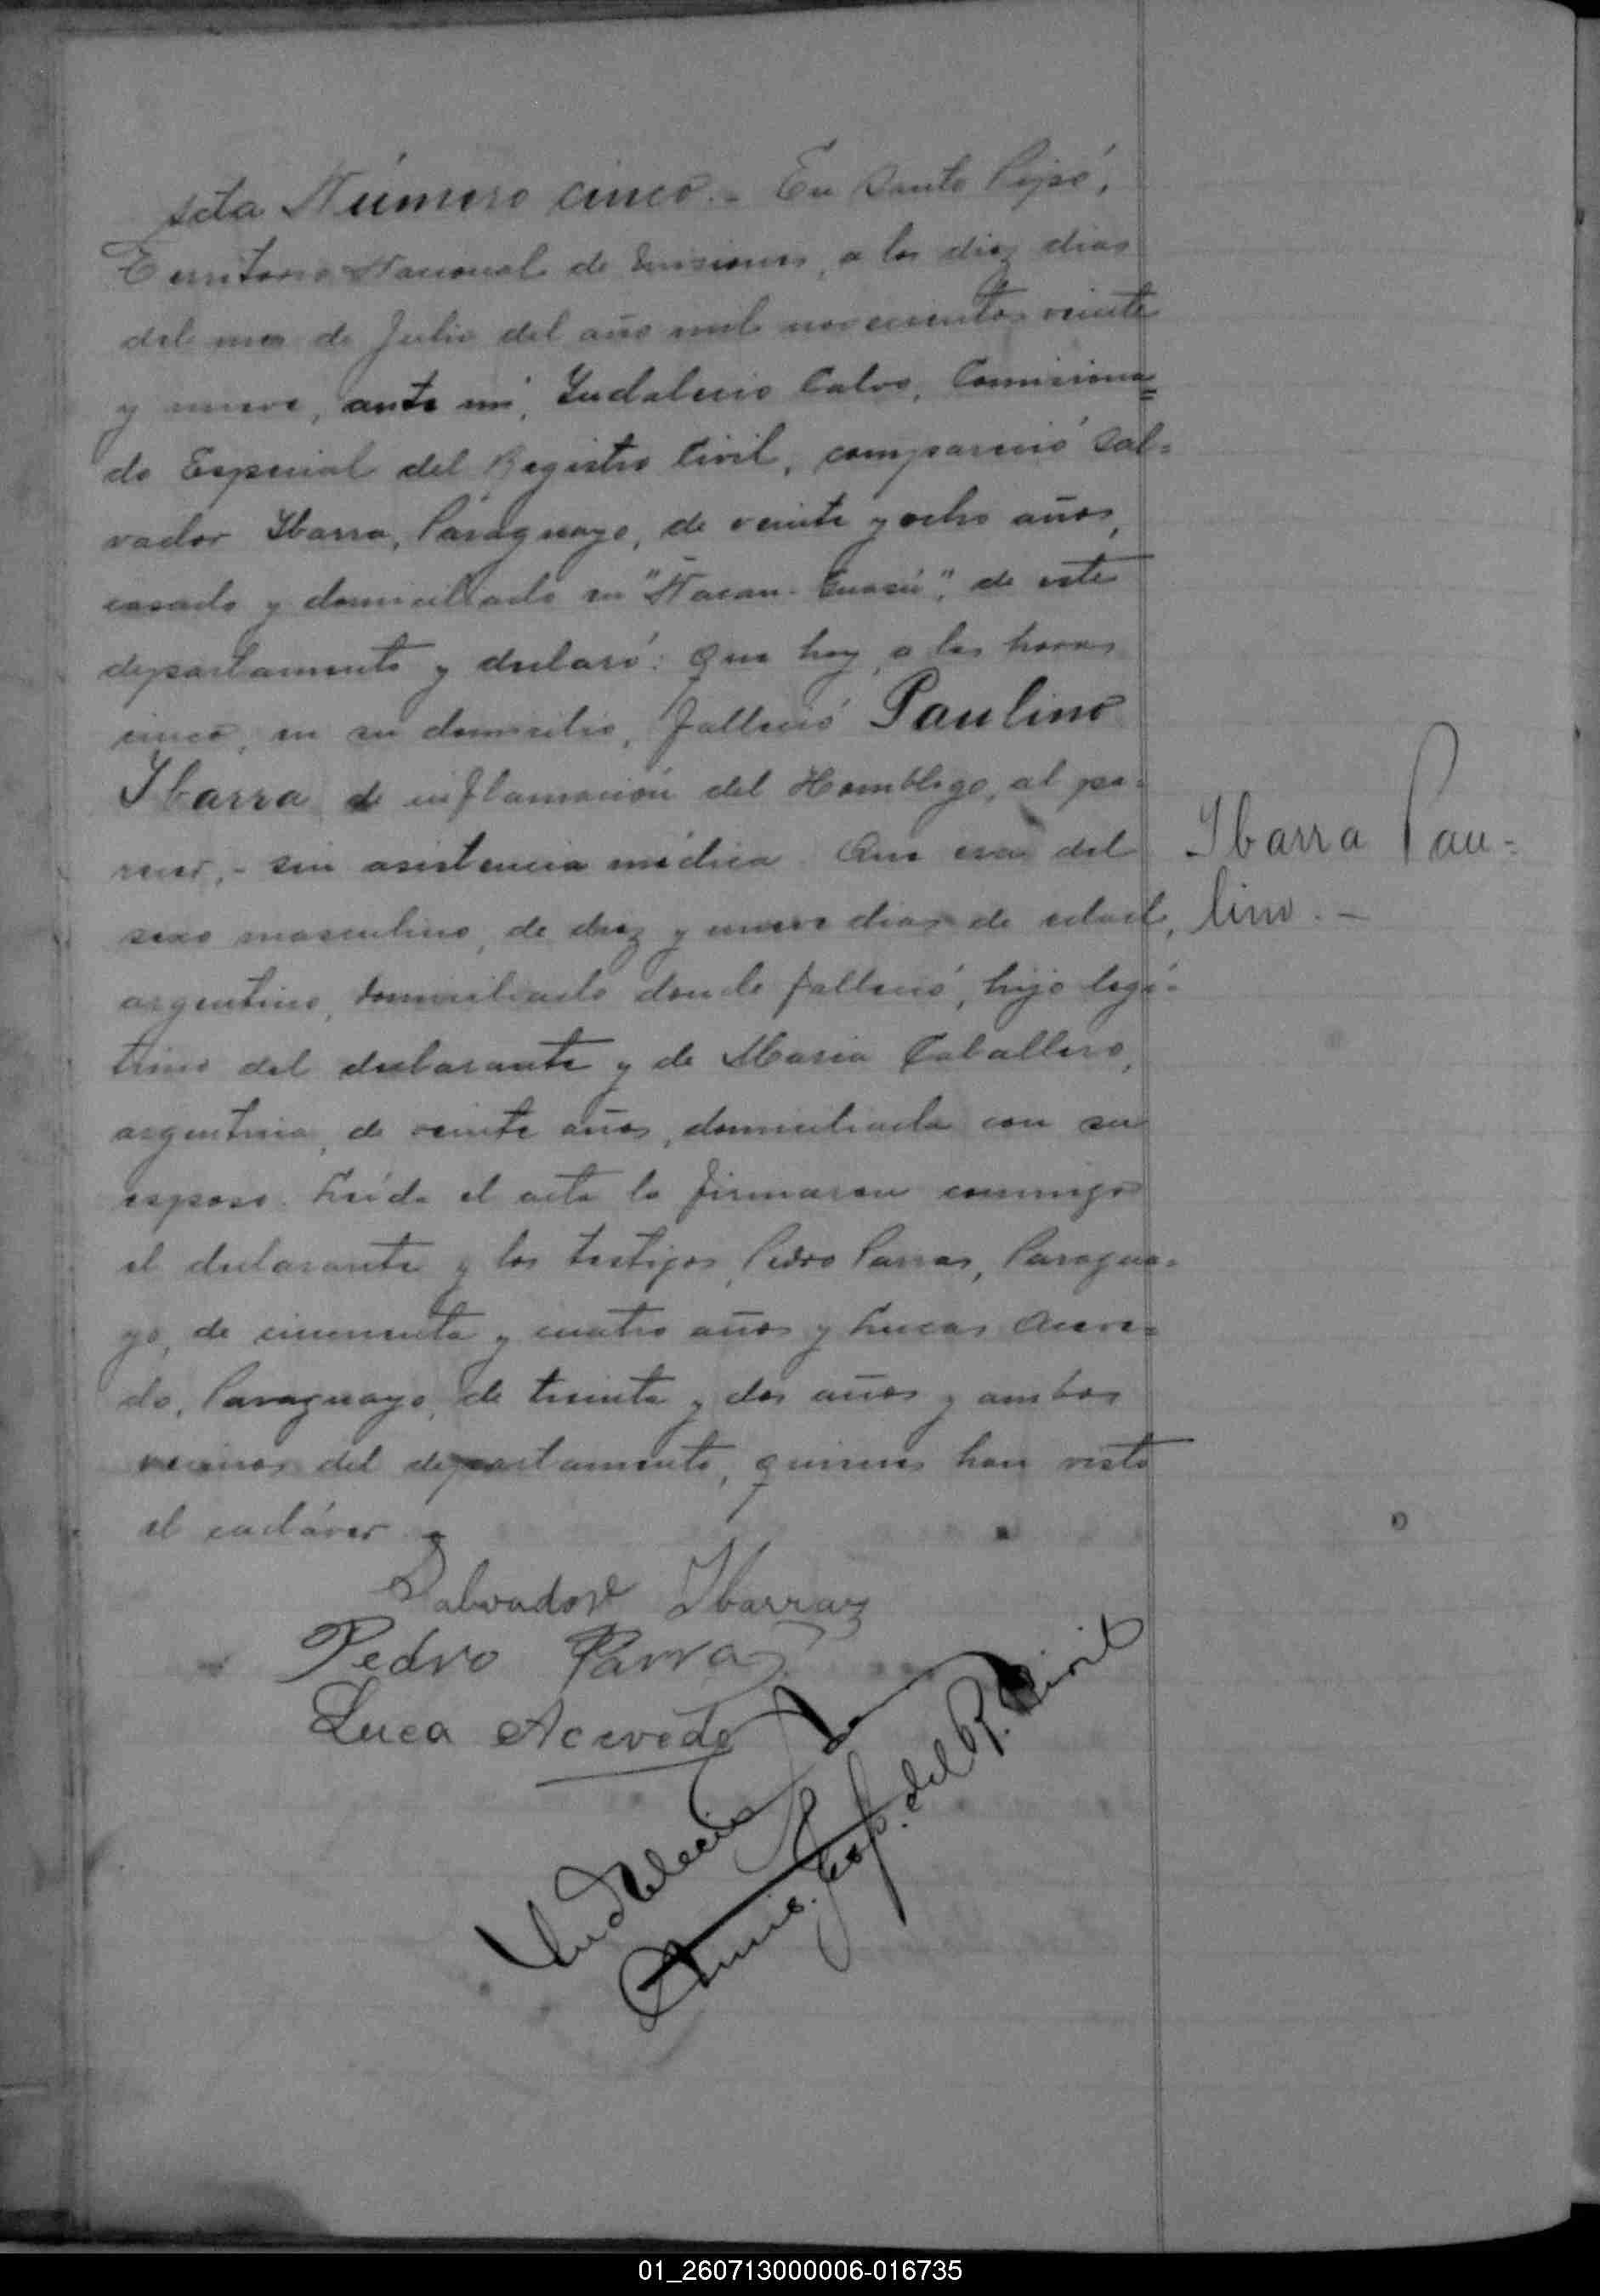 Acta Número cinco.- En Santo Pipó,
Territorio Nacional de Misiones, a los diez dias
del mes de Julio del año mil novecientos veinte
y nueve, ante mi, Yndalecio Calvo, Comisiona=
do Especial del Registro Civil, compareció Sal=
vador Ybarra, Paraguayo, de veinte y ocho años,
casado y domiciliado en "Ñacan-Guasú", de este
departamento y declaró: Que hoy, a las horas
cinco, en su domicilio, falleció Paulino
Ybarra de inflamación del Hombligo, al pa=
recer,- sin asistencia médica. Que era del
sexo masculino, de diez y nueve dias de edad,
argentino, domiciliado donde falleció, hijo legí=
timo del declarante y de Maria Caballero,
argentina, de veinte años, domiciliada con su
esposo. Leída el acta la firmaron conmigo
el declarante y los testigos, Pedro Parras, Paragua=
yo, de cincuenta y cuatro años y Lucas Aceve=
do, Paraguayo, de treinta y dos años y ambos
vecinos del departamento, quienes han visto
el cadáver.-
Ybarra Pau=
lino.-
Salvador Ybarra
Pedro Parra
Luca Acevedo
Yndalecio
Comis. Esp. del R. Civil
01_260713000006-016735